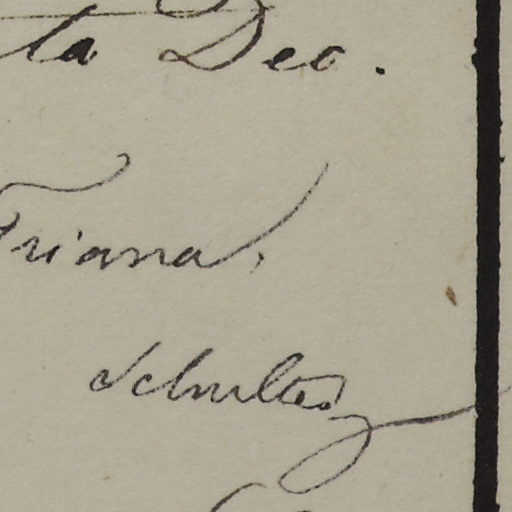 ta Dec.
Triana,
Schultes